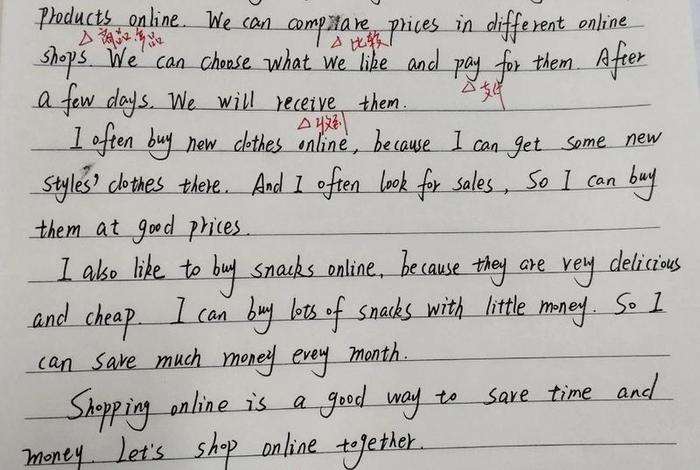 products online. We can compare prices in different online
△ 商品产品 △ 比较
shops. We can choose what we like and pay for them. After
△ 支付
a few days. We will receive them.
△ 收到
I often buy new clothes online, because I can get some new
styles' clothes there. And I often look for sales, So I can buy
them at good prices.
I also like to buy snacks online, because they are very delicious
and cheap. I can buy lots of snacks with little money. So I
can save much money every month.
Shopping online is a good way to save time and
money. Let's shop online together.